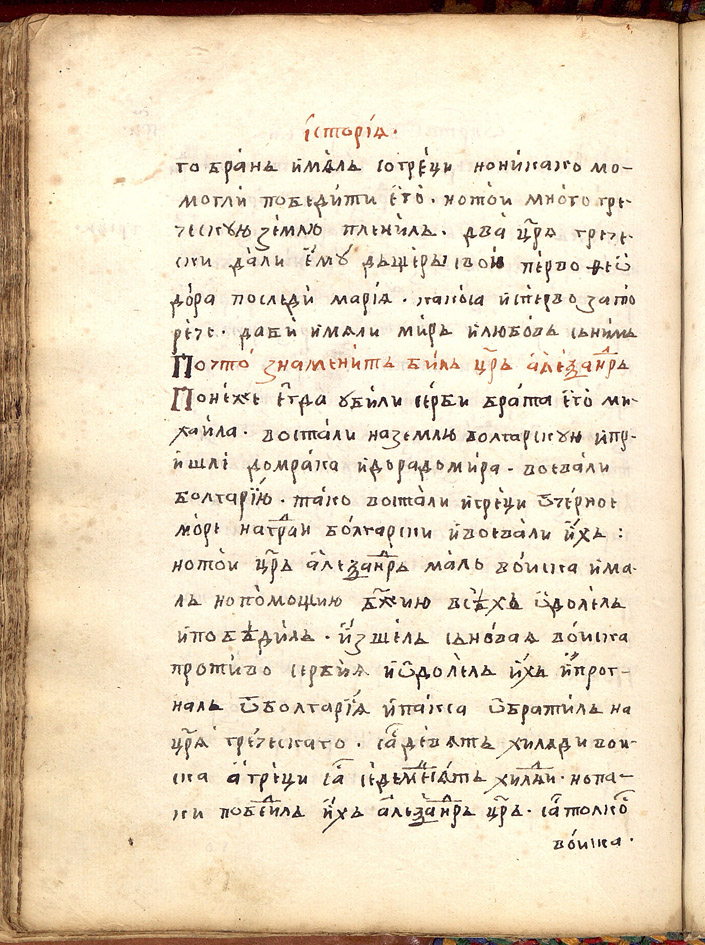 їсторїѧ·
то брань имѧль со греци но никако мо-
могли победити его· но тои много гре-
ческую землю пленилъ· два цр҃ѧ грече-
ски дали ему дъщеры свои перво ѳеѡ
дора последи марїѧ· какоса исперво запо
рече· даби имали миръ и любовь сьнимъ
Почто знаменить билъ цр҃ь алеѯандрь
Понеже егда убили серби брата его ми-
хаила· востали на землю болгарскую и пр-
ишлі до мрака и до радомира· воевали
болгарїю· тако востали и греци ѿ черное
море на град болгарски и воевали ихъ:
но тои цр҃ь алеѯандрь маль воиска има-
ль но помощию бж҃ию всѣхъ ѡдолѣль
и победилъ· изшелъ сь новаѧ воиска
противо сербиѧ и ѡдолелъ ихъ и прог-
наль ѿ болгарїѧ и пакса обратилъ на
цр҃ѧ греческаго· са деветь хилѧди вои-
ска а греци са седемдесѧть хилѧди· но па-
ки победилъ ихъ алеѯандрь цр҃ь· са толко
воиска·